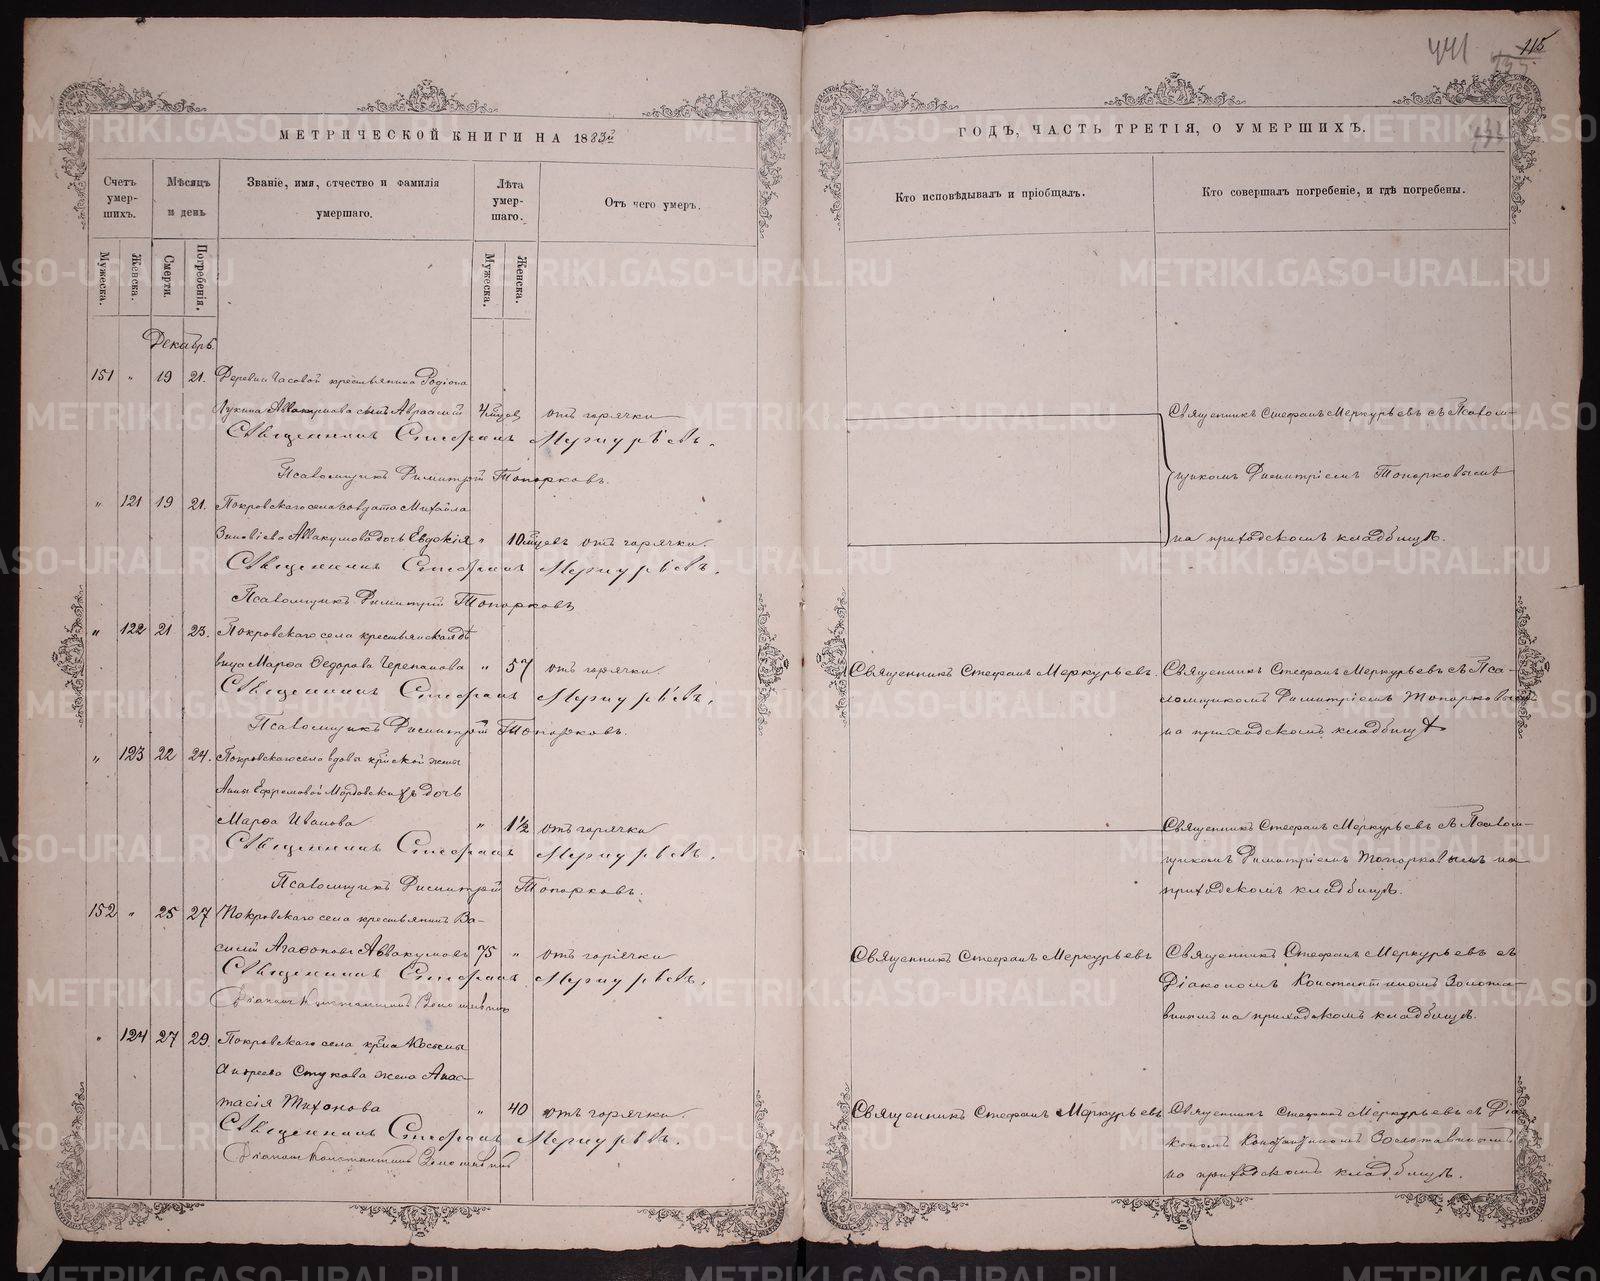 441
115
МЕТРИЧЕСКОЙ КНИГИ НА 1883й
ГОДЪ, ЧАСТЬ ТРЕТІЯ, О УМЕРШИХЪ.
Счетъ умер-шихъ.
Мѣсяцъ и день
Званіе, имя, отчество и фамилія умершаго.
Лѣта умер-шаго.
Отъ чего умеръ.
Кто исповѣдывалъ и пріобщалъ.
Кто совершалъ погребеніе, и гдѣ погребены.
Мужеска.
Женска.
Смерти.
Погребенія.
Мужеска.
Женска.
Декабрь
151 " 19 21. Деревни Часовой крестьянина Родіона
Лукина Аввакумова сынъ 4 мцев отъ горячки Священникъ Стефанъ Меркурьевъ съ Псалом-
Священникъ Стефанъ Меркурьевъ.
Псаломщикъ Димитрій Топорковъ. щикомъ Димитріемъ Топорковымъ
" 121 19 21. Покровскаго села солдата Михаила
Зиновіева Аввакумова дочь Евдокія " 10 мцевъ отъ горячки. на приходскомъ кладбищѣ.
Священникъ Стефанъ Меркурьевъ.
Псаломщикъ Димитрій Топорковъ
" 122 21 23. Покровскаго села крестьянская дѣ
вица Марѳа Ѳедорова Черепанова " 57 отъ горячки Священникъ Стефанъ Меркурьевъ. Священникъ Стефанъ Меркурьевъ съ Пса-
Священникъ Стефанъ Меркурьевъ. ломщикомъ Димитріемъ Топорковымъ
Псаломщикъ Димитрій Топорковъ. на приходскомъ кладбищѣ
" 123 22 24. Покровскаго села вдовы кр̃нской жены
Анны Ефремовой Мордовскихъ дочь
Марѳа Иванова " 1½ отъ горячки Священникъ Стефанъ Меркурьевъ съ Псалом-
Священникъ Стефанъ Меркурьевъ. щикомъ Димитріемъ Топорковымъ на
Псаломщикъ Димитрій Топорковъ. приходскомъ кладбищѣ.
152 " 25 27 Покровскаго села крестьянинъ Ва-
силій Агаѳоновъ Аввакумовъ 75 " отъ горячки Священникъ Стефанъ Меркурьевъ Священникъ Стефанъ Меркурьевъ съ
Священникъ Стефанъ Меркурьевъ. Діакономъ Константиномъ Золота-
Діаконъ Константинъ Золотавинъ винымъ на приходскомъ кладбищѣ.
" 124 27 29. Покровскаго села кр̃на Косьмы
Андреева Стукова жена Анас-
тасія Тихонова " 40 отъ горячки. Священникъ Стефанъ Меркурьевъ Священникъ Стефанъ Меркурьевъ съ Діа
Священникъ Стефанъ Меркурьевъ. кономъ Константиномъ Золотавинымъ
Діаконъ Константинъ Золотавинъ на приходскомъ кладбищѣ.
METRIKI.GASO-URAL.RU